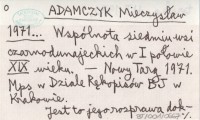 O
ADAMCZYK Mieczysław
1971... Wspólnota siedmiu wsi
czarnodunajeckich w I połowie
XIX wieku. — Nowy Targ 1971.
Mps w Dziale Rękopisów BJ w
Krakowie.
Jest to jego rozprawa dok-